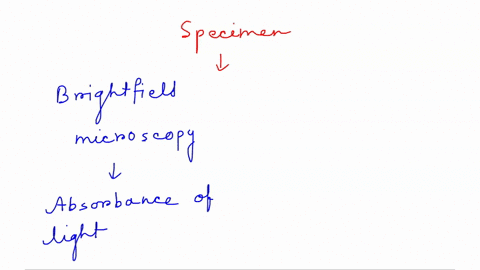 Specimen
↓
Brightfield
microscopy
↓
Absorbance of
light